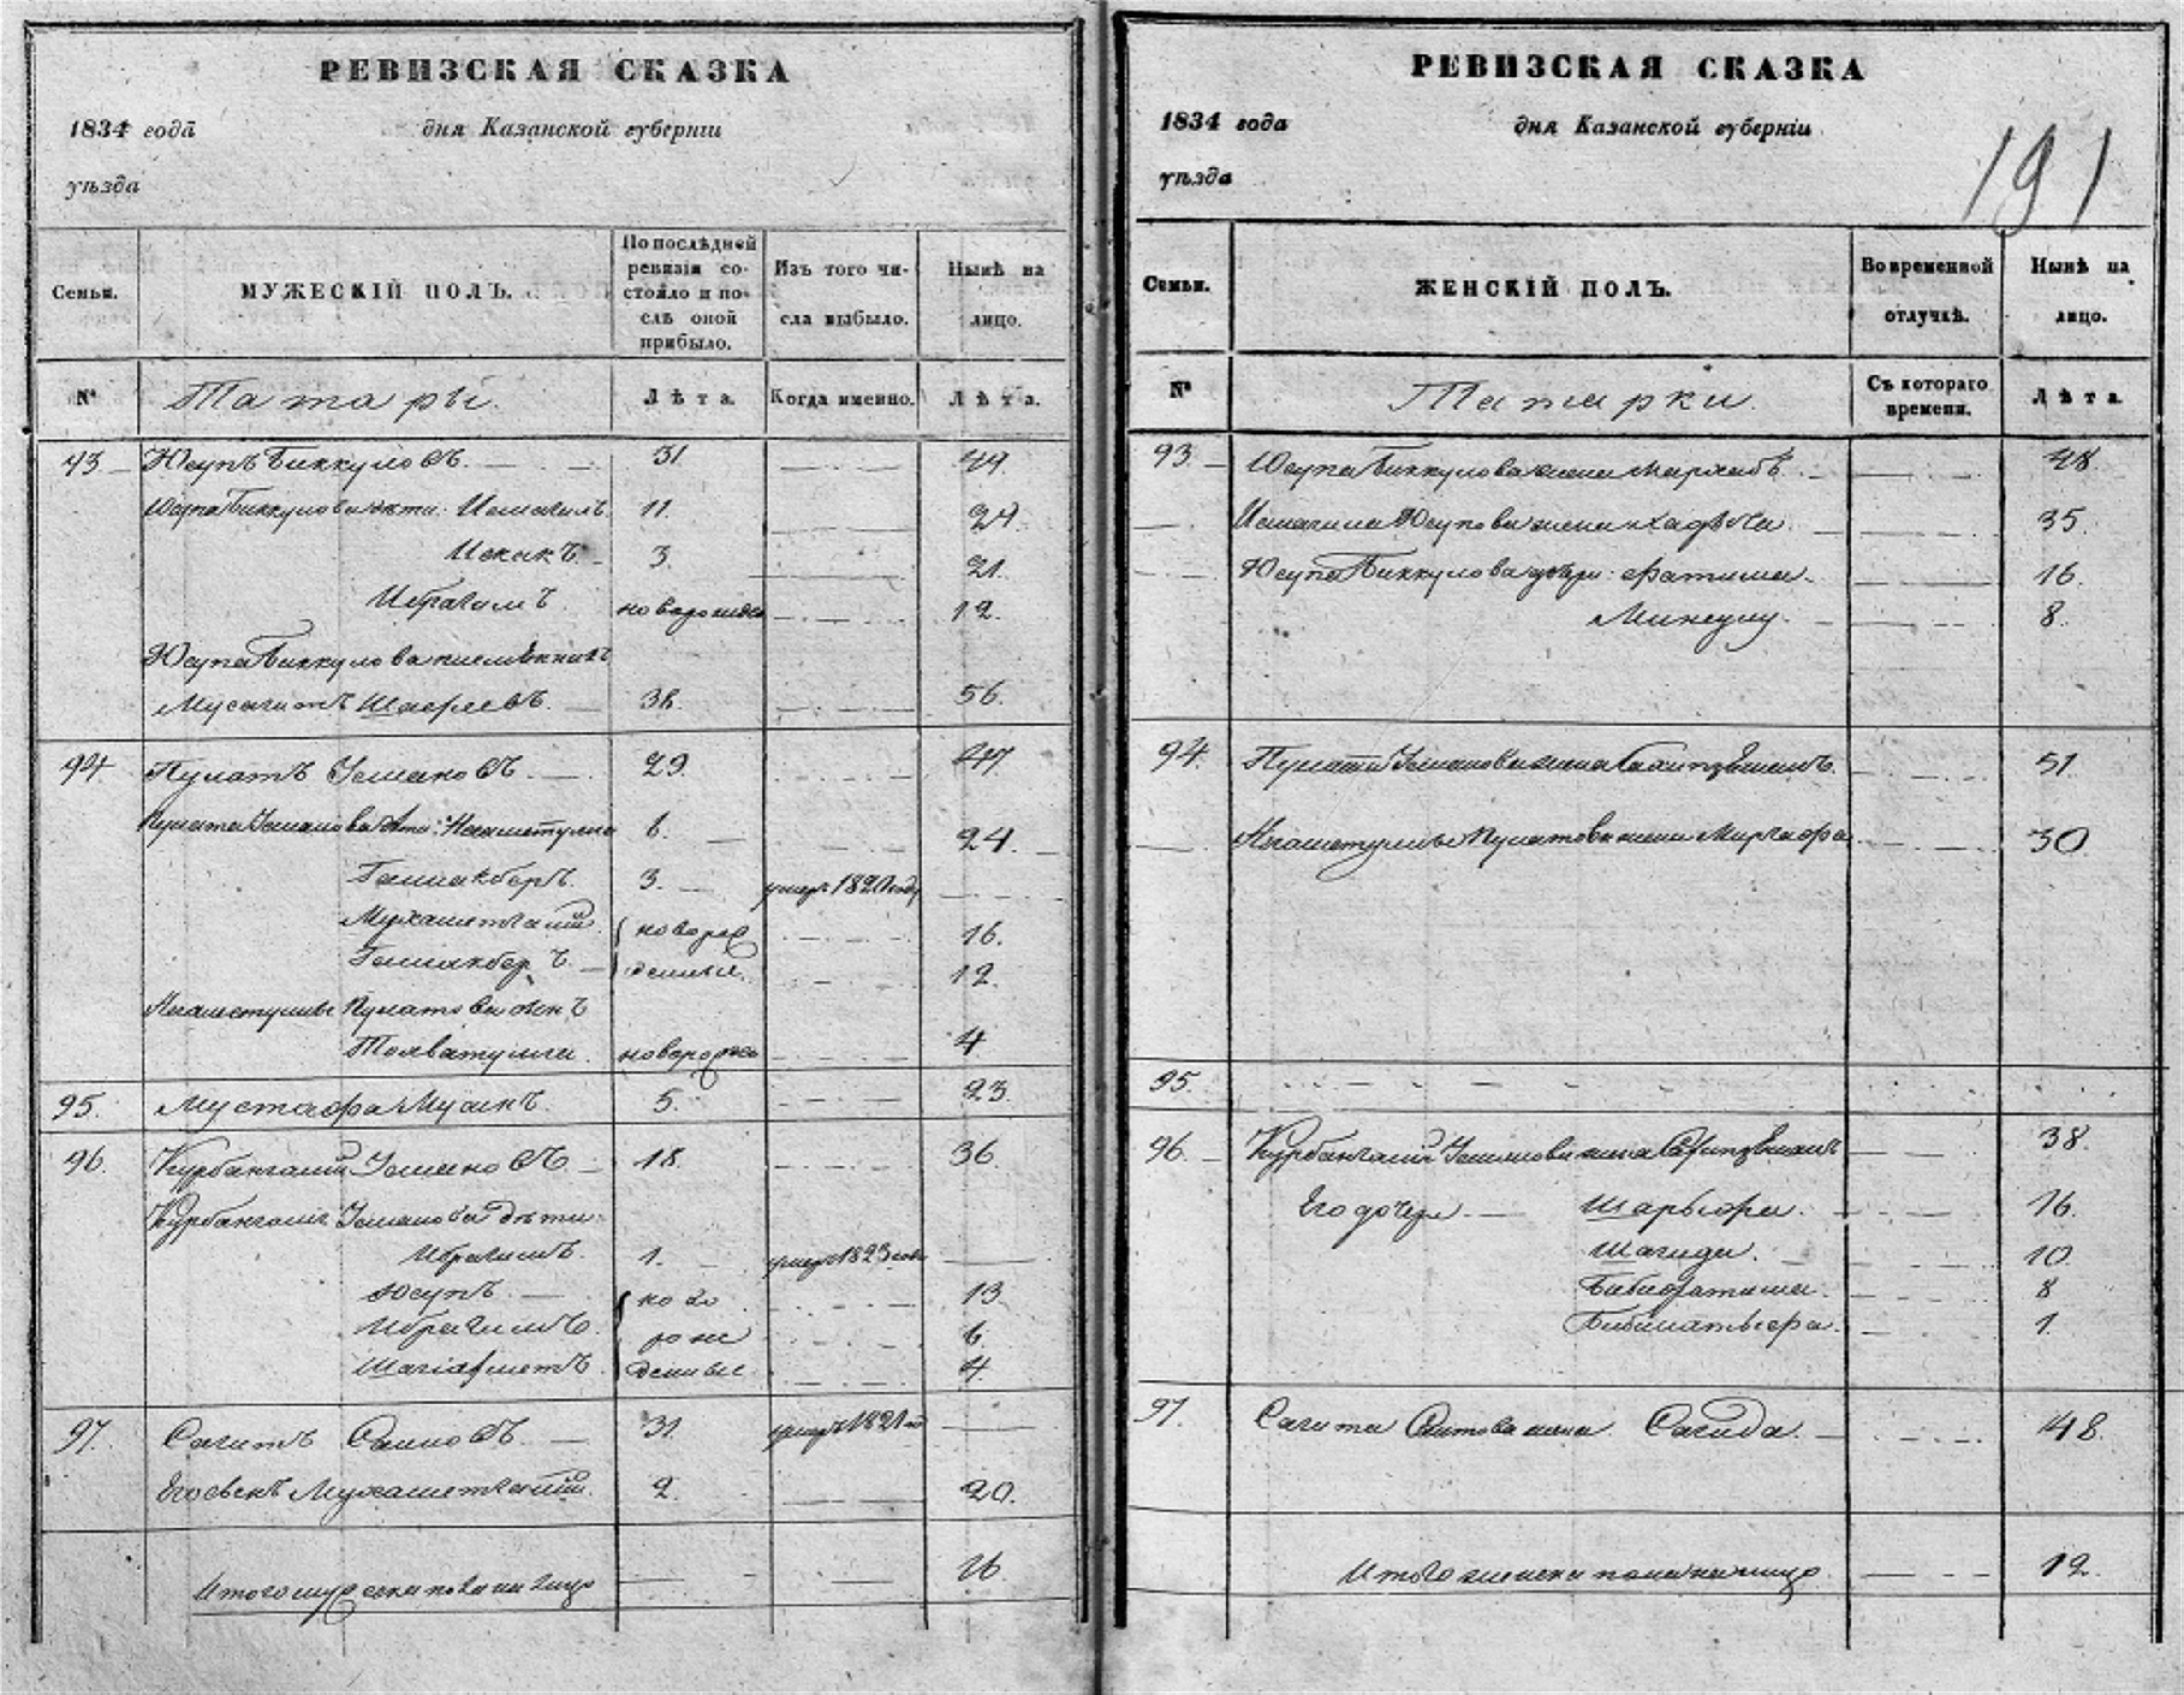 РЕВИЗСКАЯ СКАЗКА
1834 года дня Казанской губерніи
уѣзда
Семьи. МУЖЕСКІЙ ПОЛЪ. По послѣдней ревизіи состояло и послѣ оной прибыло. Изъ того числа выбыло. Нынѣ на лицо.
№ Татары. Лѣта. Когда именно. Лѣта.
93 Юсупъ Биккуловъ. 31 49.
Юсупа Биккулова дѣти: Исмагилъ. 11. 29.
Искакъ. 3. 21.
Ибрагимъ. новорожден 12.
Юсупа Биккулова племянникъ
Мусагитъ 38. 56.
94 Пулатъ Усмановъ. 29. 47.
Пулата Усманова дѣти: Неаметулла 6. 24.
Галиакберъ. 3. умеръ 1820 году
Мухаметгалій новорож 16.
Галиакберъ. денные. 12.
Неаметуллы Пулатова сынъ
новорожде 4
95. Мустафа 5. 23.
96. Курбангалій Усмановъ 18. 36.
Курбангалія Усманова дѣти:
Ибрагимъ. 1. умеръ 1823 года
Юсупъ. ново 13
Ибрагимъ. рож 6.
Шагіахметъ. денные 4.
97. Сагитъ 31. умеръ 1821 го
Его сынъ Мухаметгалій. 2. 20.
Итого мужеска пола на лицо 16.
РЕВИЗСКАЯ СКАЗКА
1834 года дня Казанской губерніи
уѣзда
191
Семьи. ЖЕНСКІЙ ПОЛЪ. Во временной отлучкѣ. Нынѣ на лицо.
№ Татарки. Съ котораго времени. Лѣта.
93. Юсупа Биккулова жена 48
Исмагила Юсупова жена 35.
Юсупа Биккулова дочери: Фатима. 16.
8.
94. Пулата Усманова жена 51.
Неаметуллы Пулатова жена 30.
95.
96. Курбангалія Усманова жена 38.
Его дочери Шарыфа. 16.
Шагида. 10.
Бибифатима. 8
1.
97. Сагита Саитова жена Сагида. 48.
Итого женска пола на лицо 12.